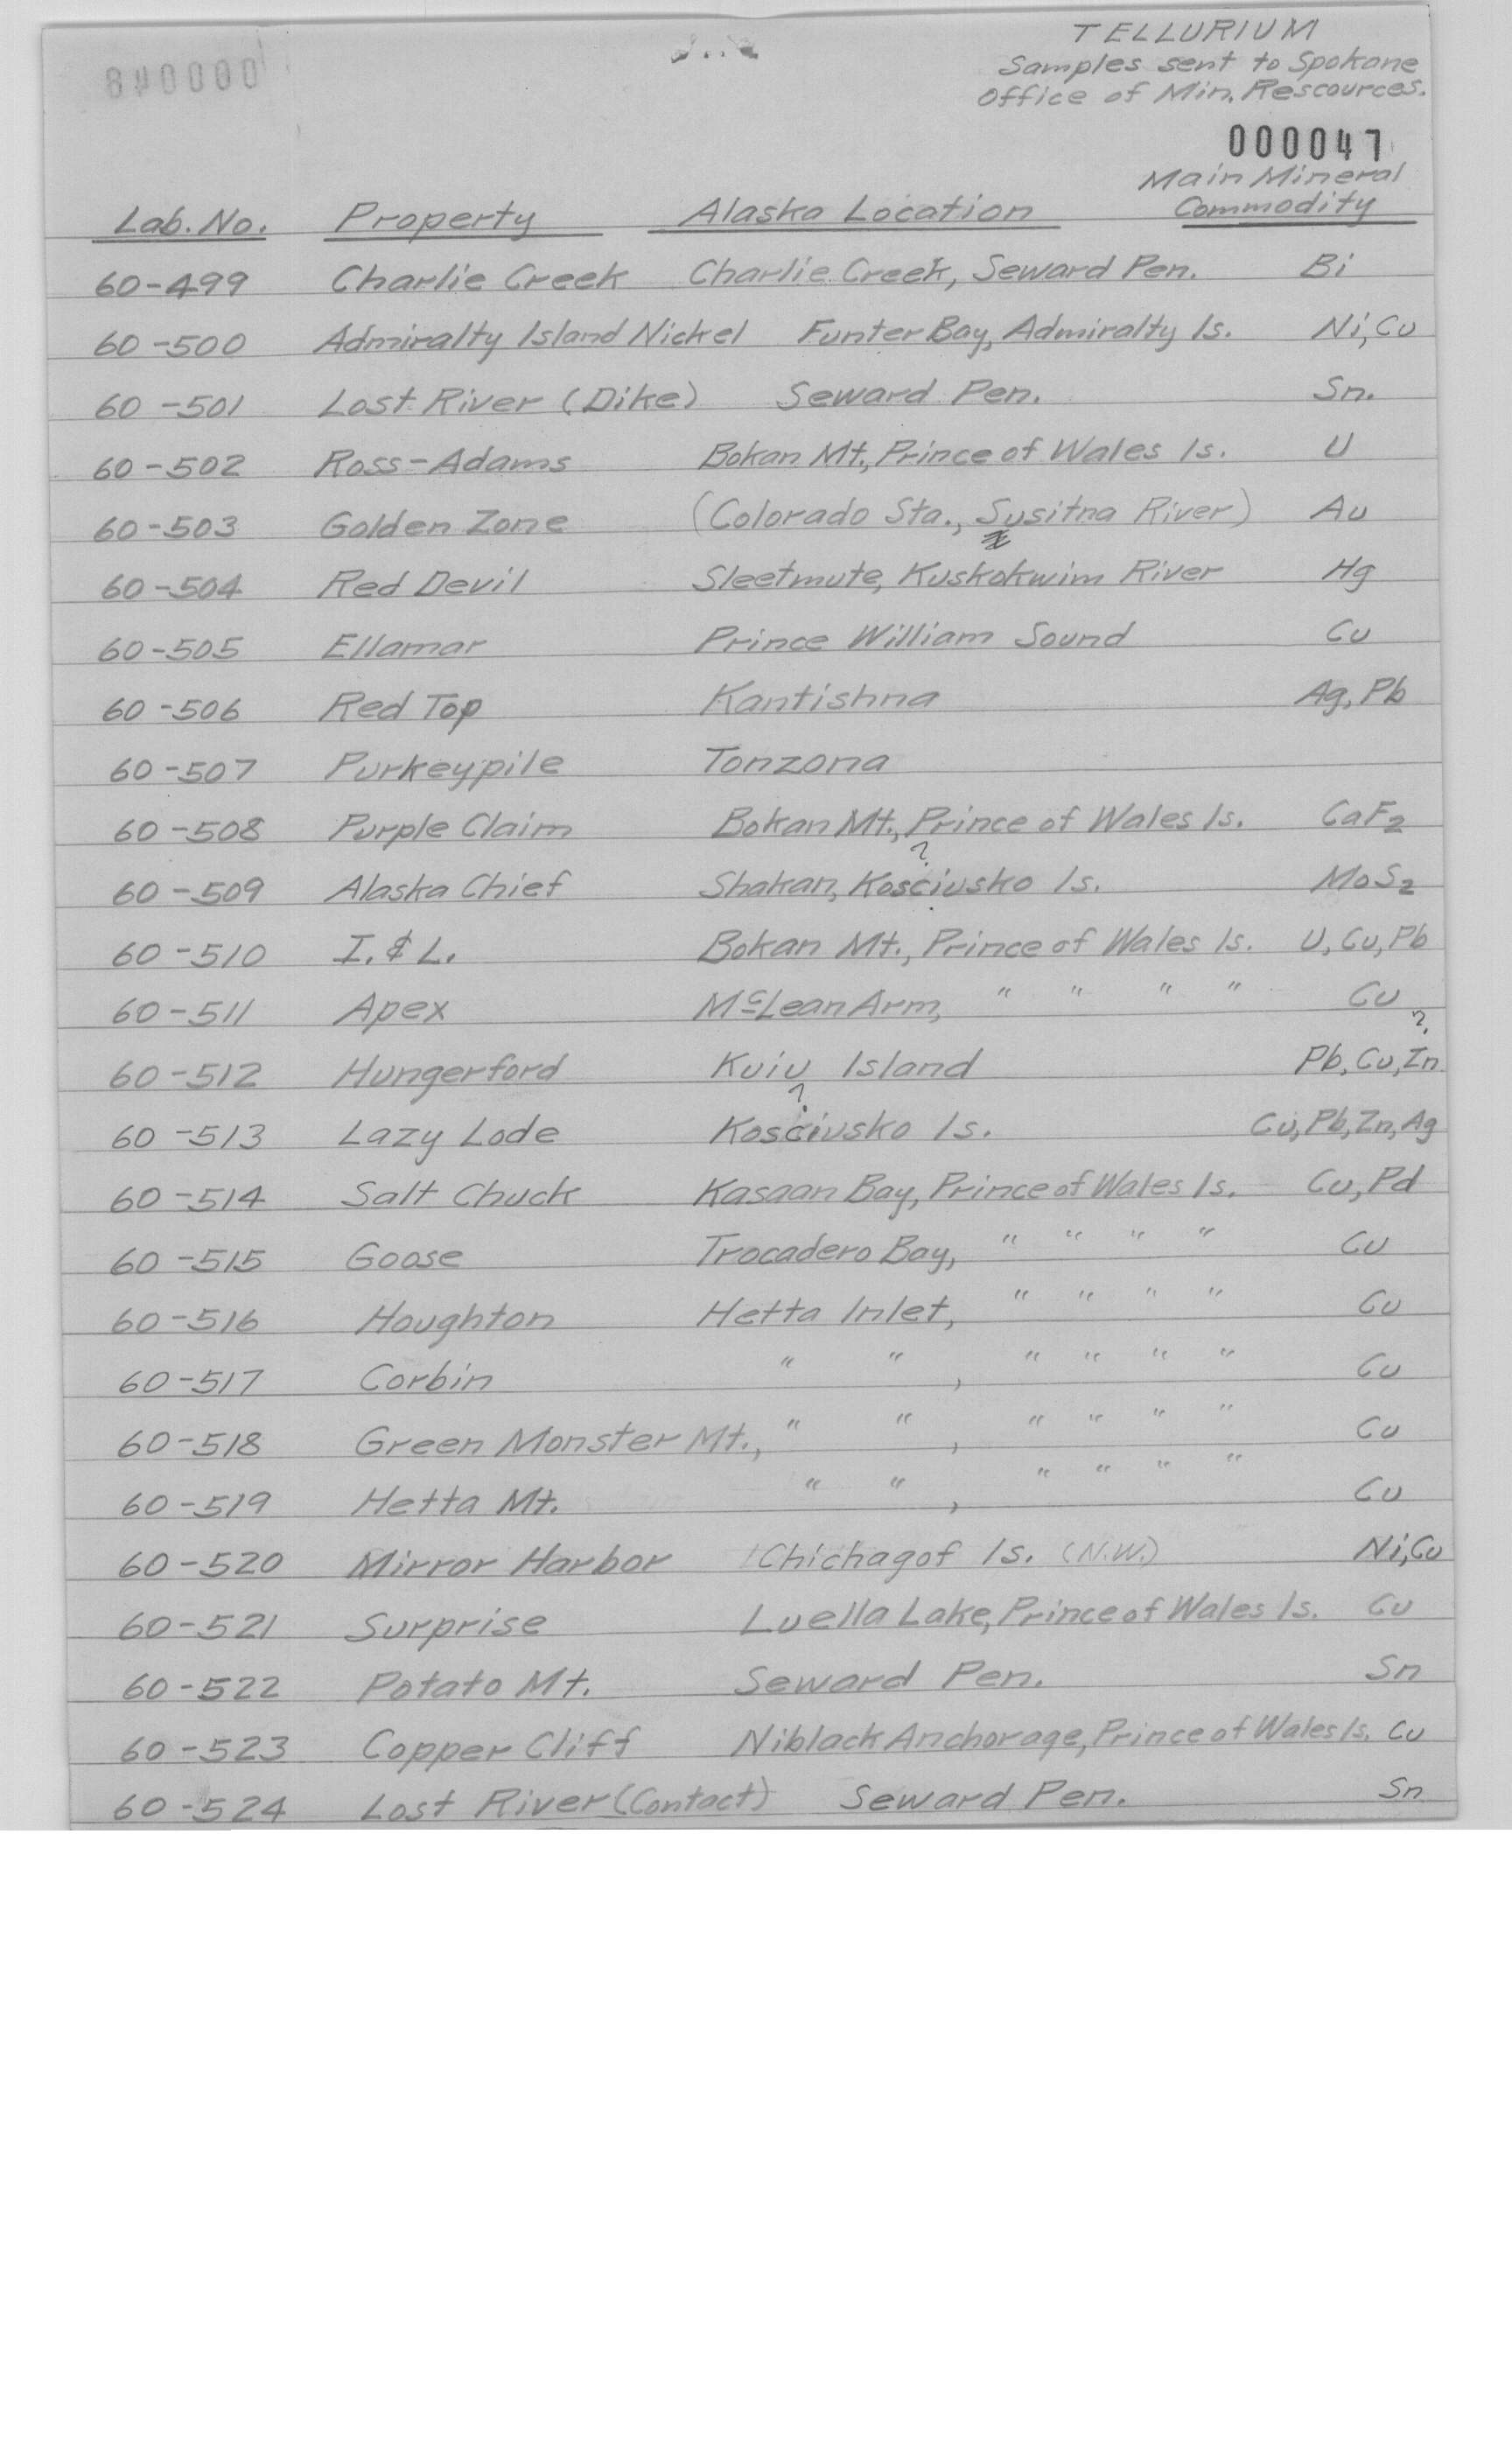 TELLURIUM
Samples sent to Spokane
Office of Min. Rescources.
000047
Main Mineral
Lab. No. Property Alaska Location Commodity
60-499 Charlie Creek Charlie Creek, Seward Pen. Bi
60-500 Admiralty Island Nickel Funter Bay, Admiralty Is. Ni, Cu
60-501 Lost River (Dike) Seward Pen. Sn.
60-502 Ross-Adams Bokan Mt., Prince of Wales Is. U
60-503 Golden Zone (Colorado Sta., Susitna River) Au
60-504 Red Devil Sleetmute, Kuskokwim River Hg
60-505 Ellamar Prince William Sound Cu
60-506 Red Top Kantishna Ag, Pb
60-507 Purkeypile Tonzona
60-508 Purple Claim Bokan Mt., Prince of Wales Is. CaF2
?
60-509 Alaska Chief Shakan, Kosciusko Is. MoS2
60-510 I. & L. Bokan Mt., Prince of Wales Is. U, Cu, Pb
60-511 Apex McLean Arm, " " " " Cu
?
60-512 Hungerford Kuiu Island Pb, Cu, Zn
?
60-513 Lazy Lode Kosciusko Is. Cu, Pb, Zn, Ag
60-514 Salt Chuck Kasaan Bay, Prince of Wales Is. Cu, Pd
60-515 Goose Trocadero Bay, " " " " Cu
60-516 Houghton Hetta Inlet, " " " " Cu
60-517 Corbin " " , " " " " Cu
60-518 Green Monster Mt., " " , " " " " Cu
60-519 Hetta Mt. " " , " " " " Cu
60-520 Mirror Harbor Chichagof Is. (N.W.) Ni, Cu
60-521 Surprise Luella Lake, Prince of Wales Is. Cu
60-522 Potato Mt. Seward Pen. Sn
60-523 Copper Cliff Niblack Anchorage, Prince of Wales Is. Cu
60-524 Lost River (Contact) Seward Pen. Sn